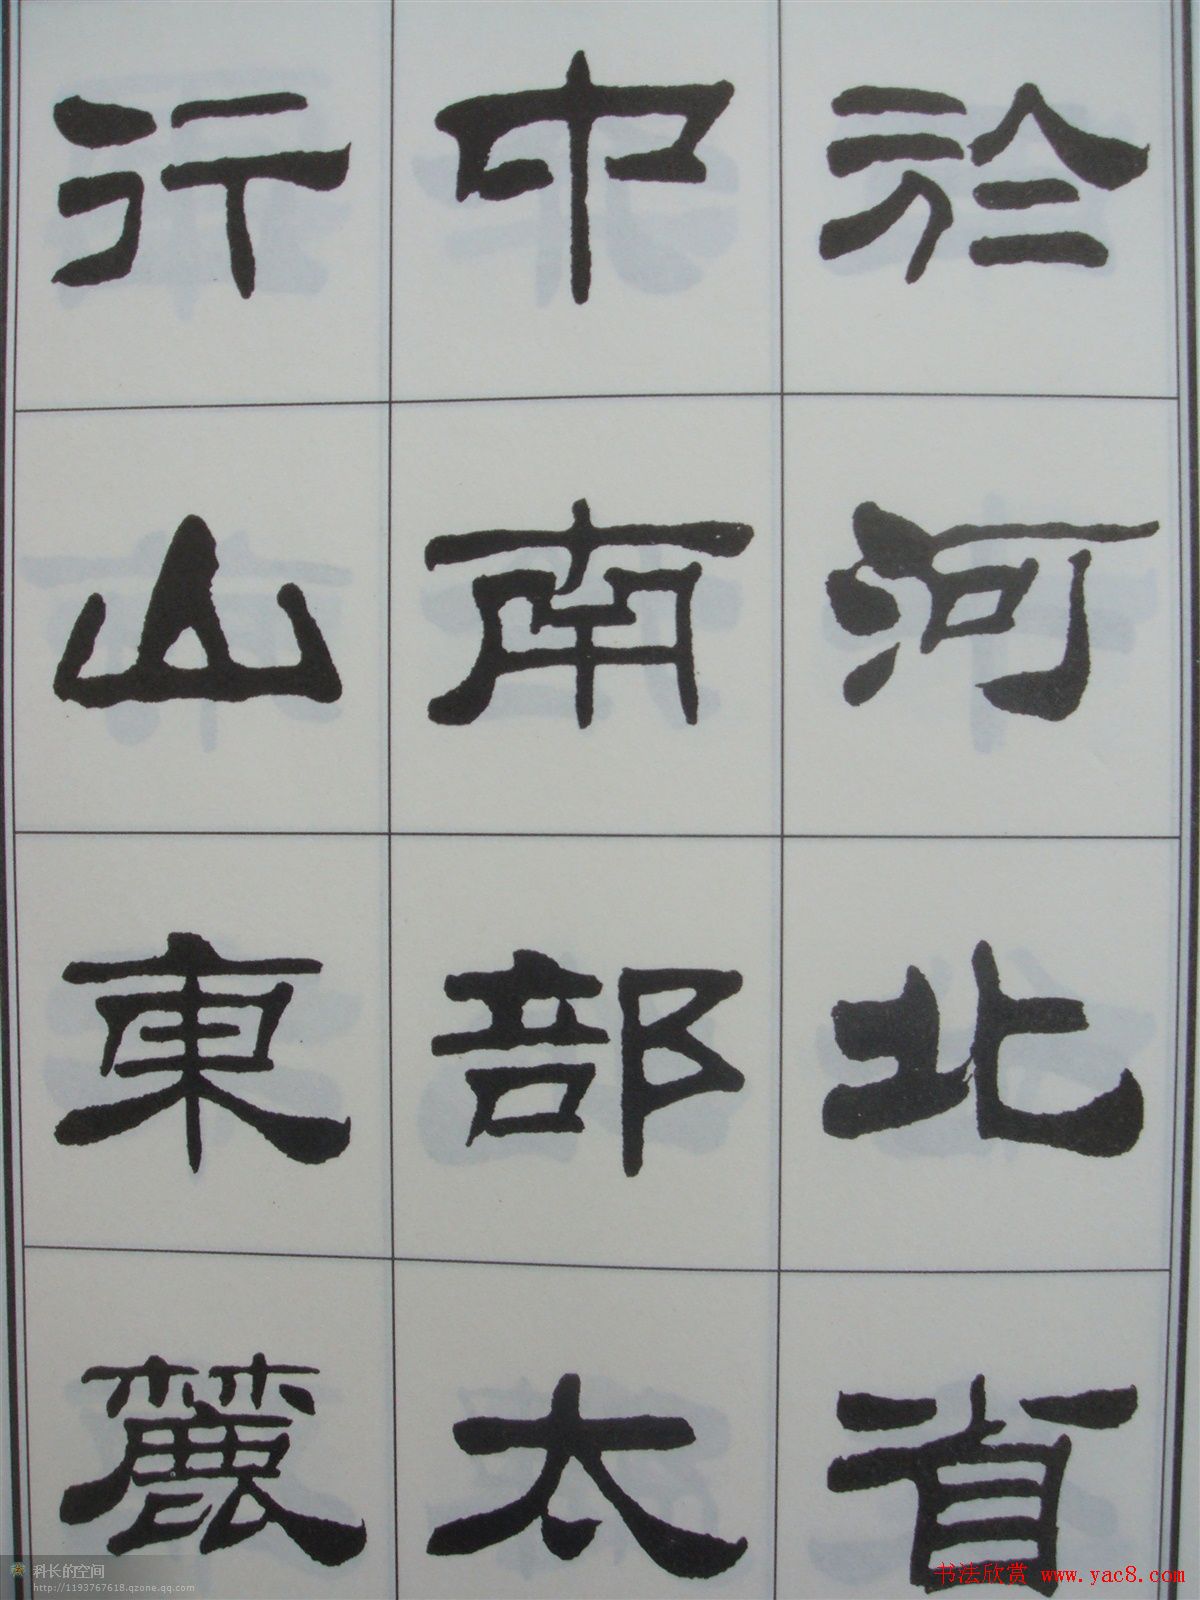 於河北省
中南部太
行山東麓
科长的空间
http://1193767618.qzone.qq.com
书法欣赏 www.yac8.com